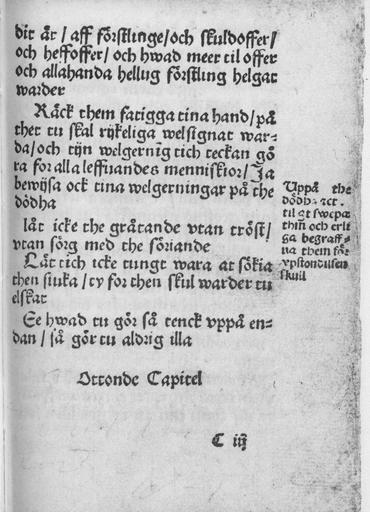 dit är / aff förstlinge / och skuldoffer /
och heffoffer / och hwad meer til offer
och allahanda hellug förstling helgat
warder
Räck them fatigga tina hand / på
thet tu skal rijkeliga welsignat war-
da / och tijn welgerni̅g tich teckan gö
ra for alla leffuandes menniskior / Ja
bewijsa ock tina welgerningar på the
dödha
lät icke the grätande vtan tröst /
vtan sörg med the söriande
Lät tich icke tungt wara at sökia
then siuka / ty for then skul warder tu
elskat
See hwad tu gör så tenck vppå en-
dan / så gör tu aldrig illa
Uppå the
dödha act.
til at swepa
thm̅ och erli
ga begraff-
ua them för
vpstondilsen
skuil
Ottonde Capitel
C iiij